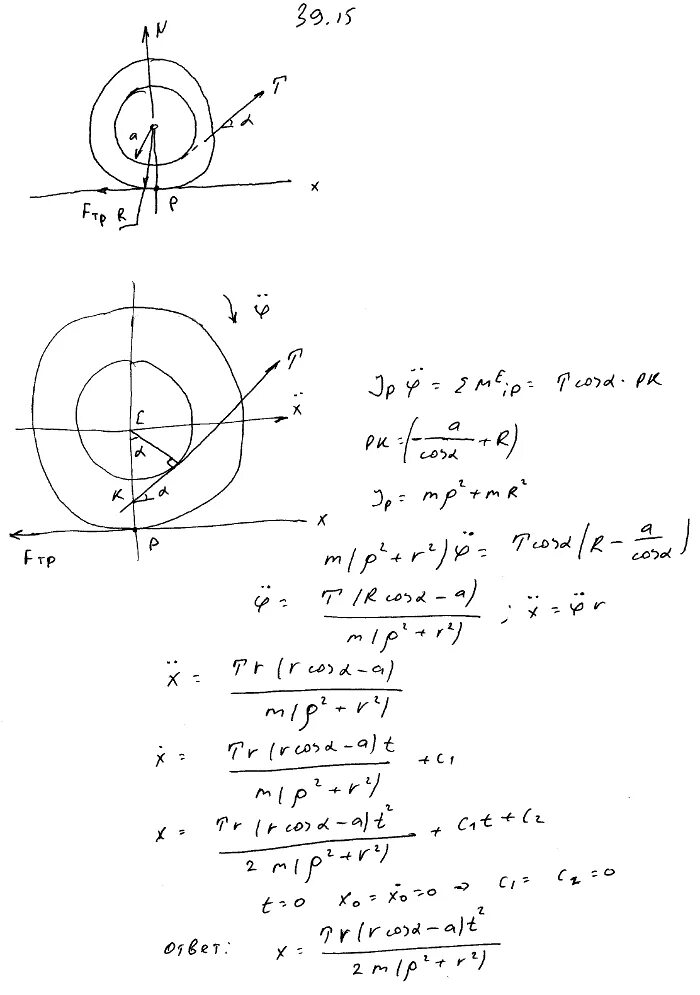 39.15
N
T
a
α
x
Fтр R
P
φ̈
T
C
ẍ
α
K
α
x
P
Fтр
Jₚ φ̈ = Σ Mᴱᵢₚ = T cosα · PK
PK = (-a/cosα + R)
Jₚ = mρ² + mR²
m(ρ² + r²) φ̈ = T cosα (R - a/cosα)
φ̈ = T (R cosα - a) / m(ρ² + r²) ; ẍ = φ̈ r
ẍ = T r (r cosα - a) / m(ρ² + r²)
ẋ = T r (r cosα - a) t / m(ρ² + r²) + C₁
x = T r (r cosα - a) t² / 2 m(ρ² + r²) + C₁t + C₂
t = 0 x₀ = ẋ₀ = 0 => C₁ = C₂ = 0
Ответ: x = T r (r cosα - a) t² / 2 m(ρ² + r²)